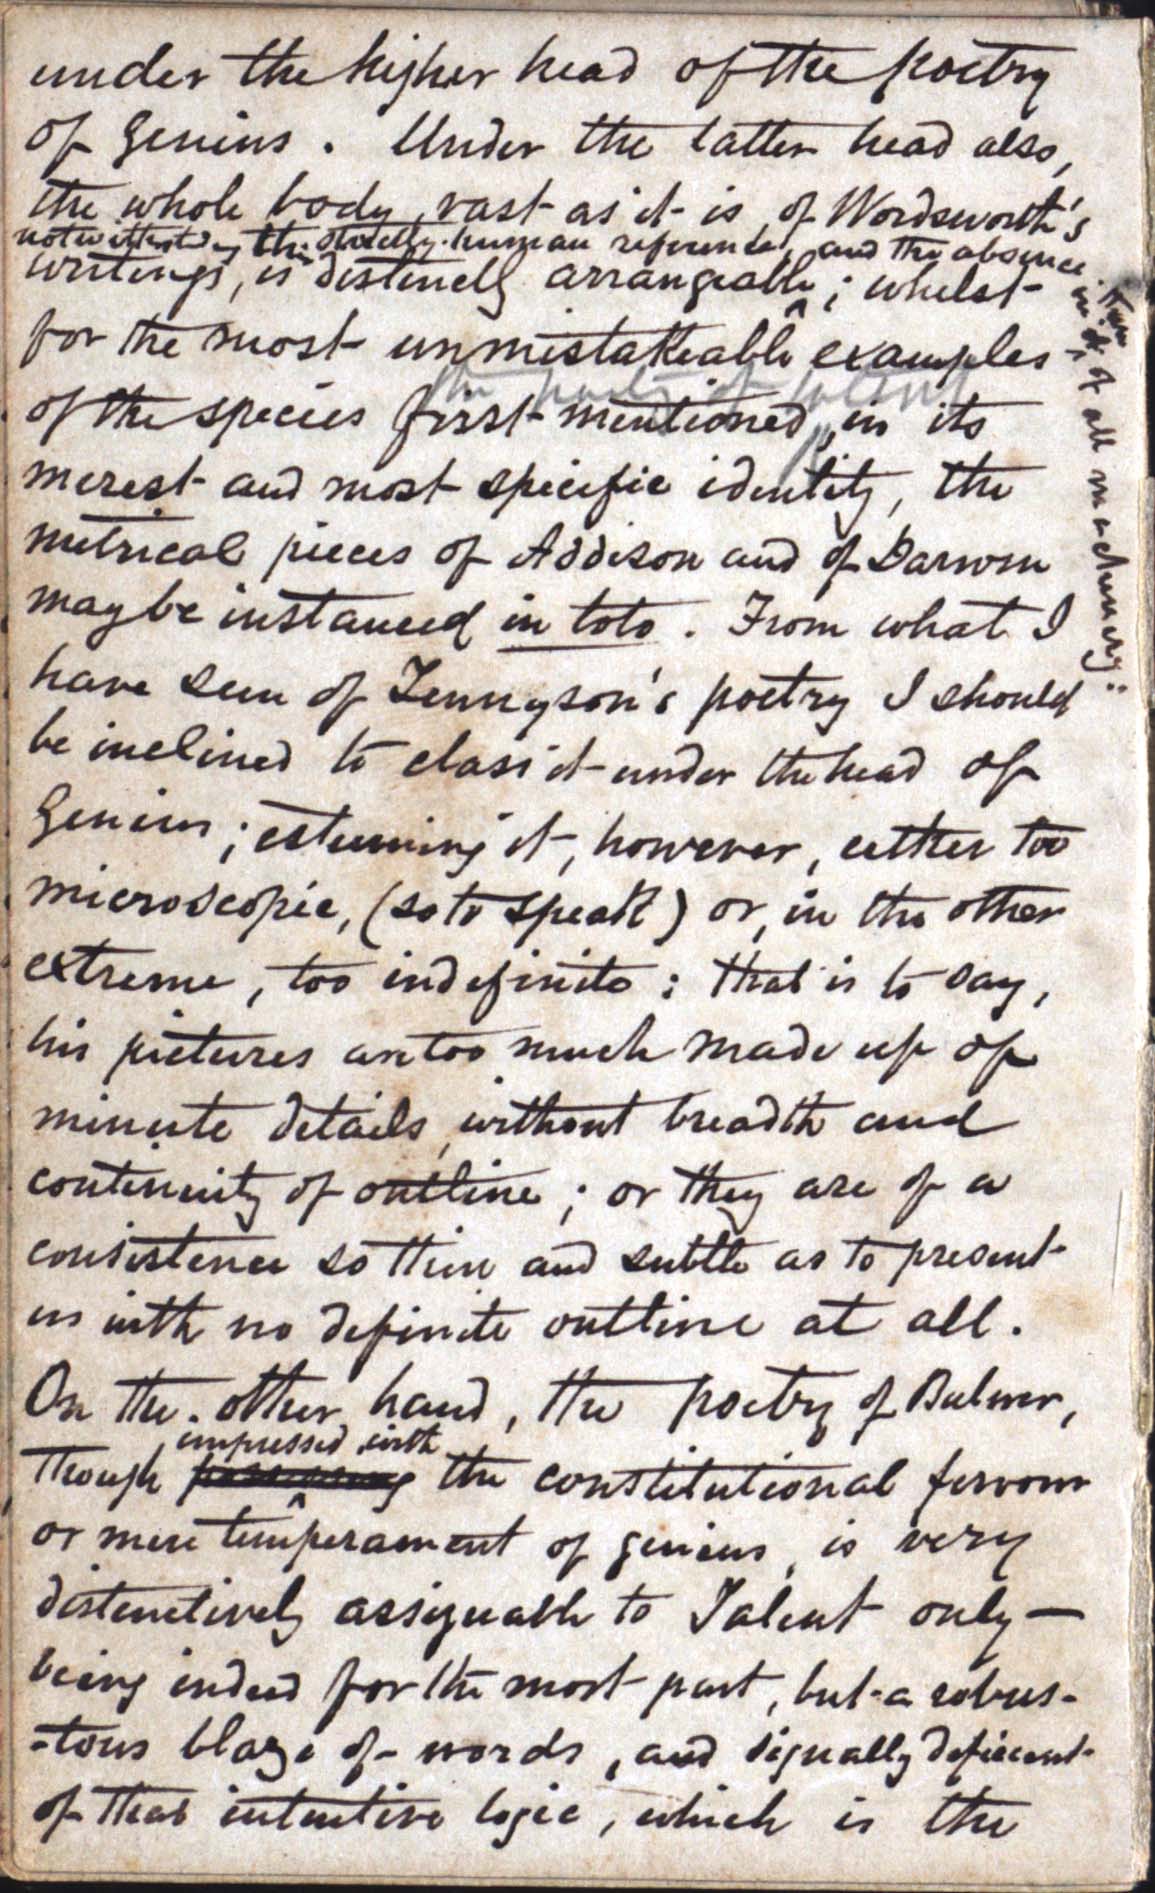 under the higher head of the poetry
of Genius. Under the latter head also,
the whole body, vast as it is, of Wordsworth's
notwithstanding the strictly human reference, and the absence
in it, of all machinery;
writings, is distinctly arrangeable; whilst
for the most unmistakeable examples
the poetry of talent
of the species first-mentioned, in its
merest and most specific identity, the
metrical pieces of Addison and of Darwin
may be instanced in toto. From what I
have seen of Tennyson's poetry I should
be inclined to class it under the head of
Genius; esteeming it, however, either too
microscopic, (so to speak) or, in the other
extreme, too indefinite: that is to say,
his pictures are too much made up of
minute details, without breadth and
continuity of outline; or they are of a
consistence so thin and subtle as to present
us with no definite outline at all.
On the other hand, the poetry of Bulwer,
impressed with
though possessing the constitutional fervour
or mere temperament of genius, is very
distinctively assignable to Talent only—
being indeed for the most part, but a robus-
-tous blaze of words, and signally deficient
of that intuitive logic, which is the